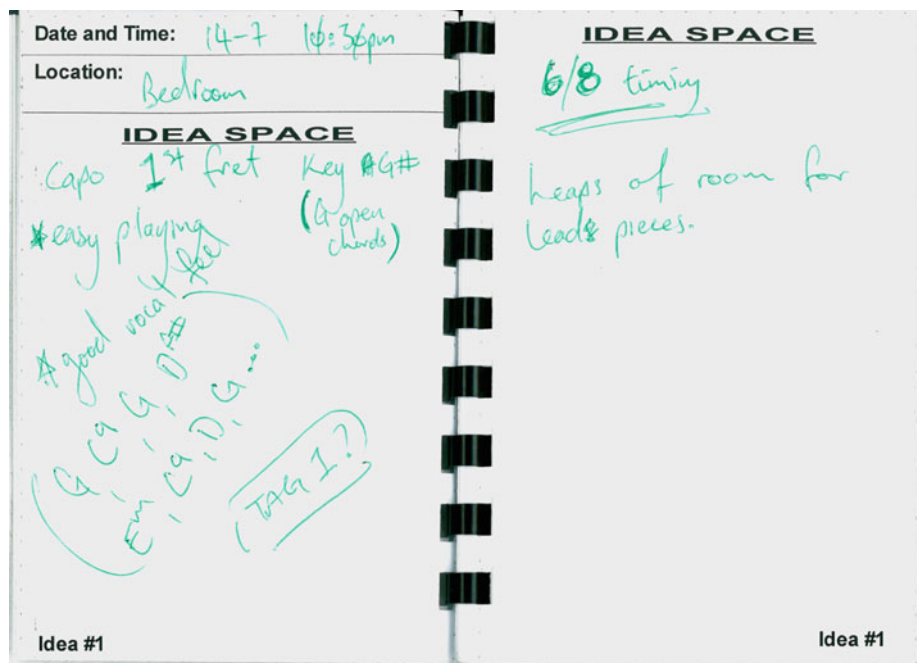 Date and Time: 14-7 10:30pm
Location: Bedroom
IDEA SPACE
Capo 1st fret Key G#
(G open
chords)
*easy playing
*good vocal feel
(G, C9, G, D#
Em, C9, D, G...)
(TAG 1?)
Idea #1
IDEA SPACE
6/8 timing
heaps of room for
lead pieces.
Idea #1